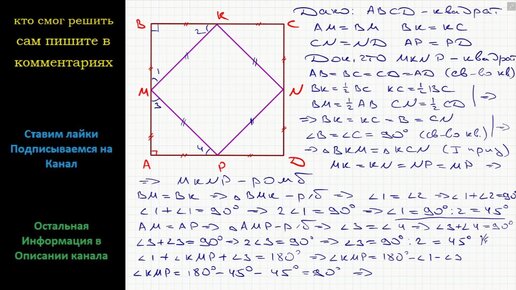 кто смог решить
сам пишите в
комментариях
Ставим лайки
Подписываемся на
Канал
Остальная
Информация в
Описании канала
B
K
C
2
1
M
N
3
4
A
P
D
Дано: ABCD - квадрат
AM = BM BK = KC
CN = ND AP = PD
Док, что MKNP - квадрат
AB = BC = CD = AD (св-во кв)
BK = ½ BC KC = ½ BC
BM = ½ AB CN = ½ CD | ⇒
⇒ BK = KC = B = CN
∠B = ∠C = 90° (св-во кв.) | ⇒
⇒ △BKM = △KCN (I приз)
MK = KN = NP = MP ⇒
⇒ MKNP - ромб
BM = BK ⇒ △BMK - р/б ⇒ ∠1 = ∠2 ⇒ ∠1+∠2 = 90°
∠1+∠1 = 90° ⇒ 2∠1 = 90° ⇒ ∠1 = 90° : 2 = 45°
AM = AP ⇒ △AMP - р/б ⇒ ∠3 = ∠4 ⇒ ∠3+∠4 = 90°
∠3+∠3 = 90° ⇒ 2∠3 = 90° ⇒ ∠3 = 90° : 2 = 45°
∠1 + ∠KMP + ∠3 = 180° ⇒ ∠KMP = 180° - ∠1 - ∠3
∠KMP = 180° - 45° - 45° = 90° ⇒